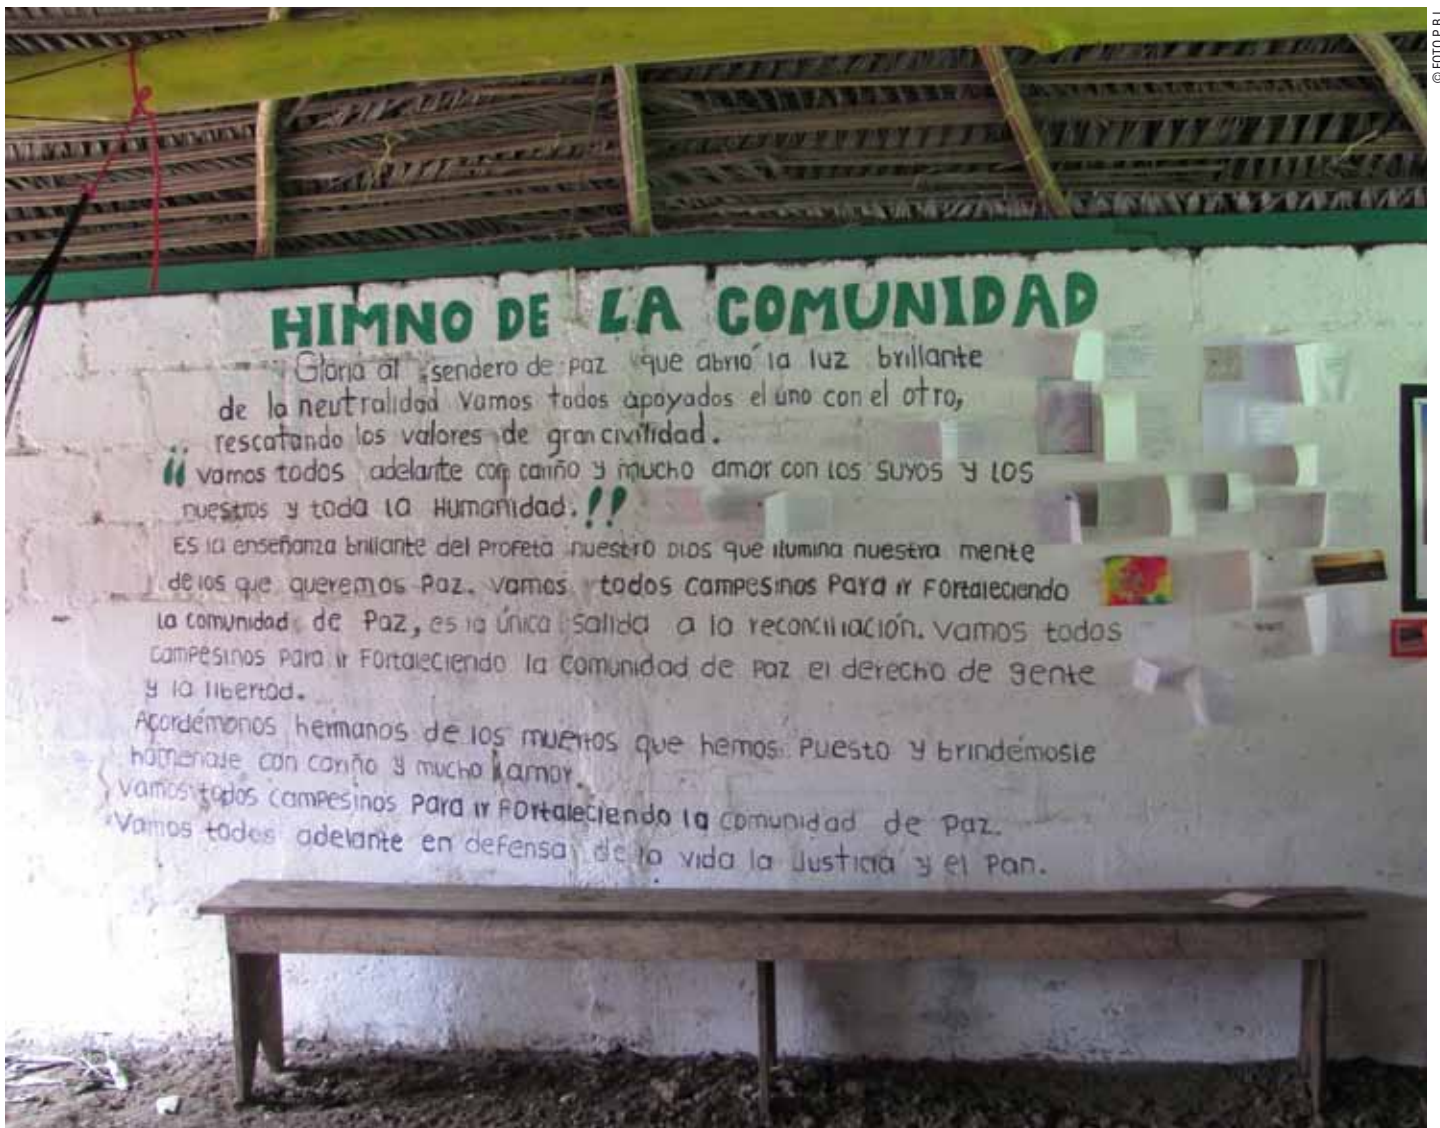 HIMNO DE LA COMUNIDAD
Gloria al sendero de paz que abrió la luz brillante
de la neutralidad Vamos todos apoyados el uno con el otro,
rescatando los valores de gran civilidad.
¡¡ vamos todos adelante con cariño y mucho amor con los suyos y los
nuestros y toda la Humanidad. !!
Es la enseñanza brillante del Profeta nuestro Dios que ilumina nuestra mente
de los que queremos Paz. vamos todos campesinos Para ir Fortaleciendo
la comunidad de Paz, es la única salida a la reconciliación. vamos todos
campesinos Para ir Fortaleciendo la comunidad de Paz el derecho de gente
y la libertad.
Acordémonos hermanos de los muertos que hemos Puesto y brindémosle
homenaje con cariño y mucho amor.
Vamos todos campesinos Para ir Fortaleciendo la comunidad de Paz.
Vamos todos adelante en defensa de la vida la Justicia y el Pan.
© FOTO P B I